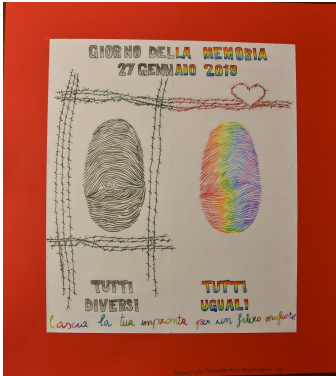 GIORNO DELLA MEMORIA
27 GENNAIO 2019
TUTTI
DIVERSI
TUTTI
UGUALI
Lascia la tua impronta per un futuro migliore